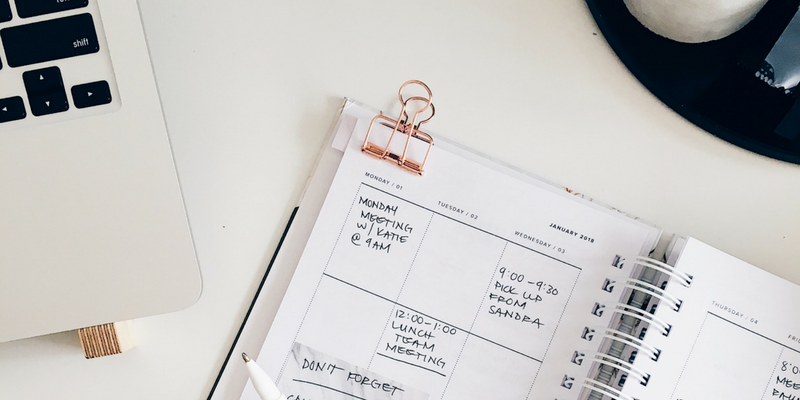 shift
MONDAY / 01
TUESDAY / 02
JANUARY 2018
WEDNESDAY / 03
MONDAY
MEETING
W/ KATIE
@ 9AM
9:00-9:30
PICK UP
FROM
SANDRA
12:00-1:00
LUNCH
TEAM
MEETING
DON'T FORGET
THURSDAY / 04